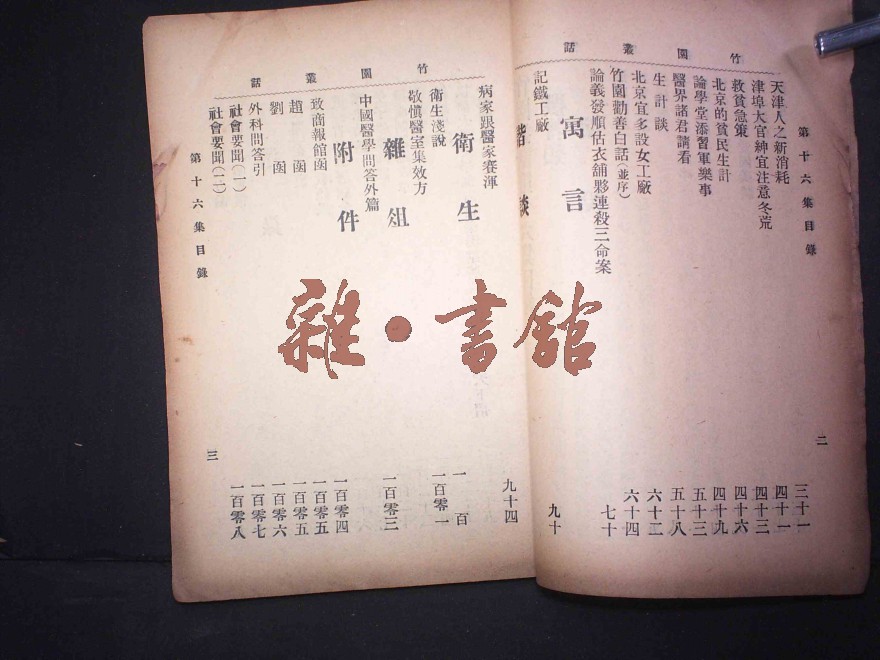 竹園叢話
第十六集目錄
二
天津人之新消耗 三十一
津埠大官紳宜注意冬荒 四十一
救貧急策 四十三
北京的貧民生計 四十六
論學堂添習軍樂事 四十九
醫界諸君請看 五十三
生計談 五十八
北京宜多設女工廠 六十二
竹園勸善白話(並序) 六十四
論義發順估衣舖夥連殺三命案 七十
寓言
記鐵工廠 九十
諧談
竹園叢話
病家跟醫家賽渾 九十四
衛生
衛生淺說 一百
敬慎醫室集效方 一百零一
雜俎
中國醫學問答外篇 一百零三
附件
致商報館函 一百零四
趙函 一百零五
劉函 一百零五
外科問答引 一百零六
社會要聞(一) 一百零七
社會要聞(二) 一百零八
第十六集目錄
三
雜·書館